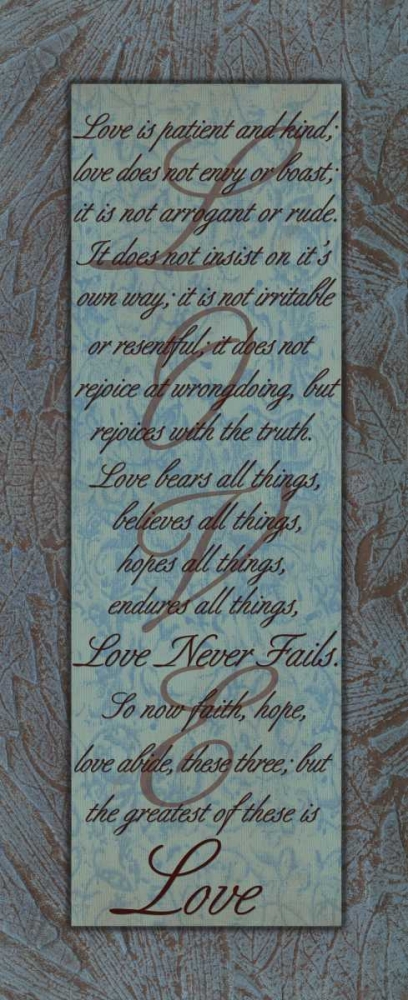 Love is patient and kind;
love does not envy or boast;
it is not arrogant or rude.
It does not insist on it's
own way; it is not irritable
or resentful; it does not
rejoice at wrongdoing, but
rejoices with the truth.
Love bears all things,
believes all things,
hopes all things,
endures all things,
Love Never Fails.
So now faith, hope,
love abide, these three; but
the greatest of these is
Love
L
O
V
E